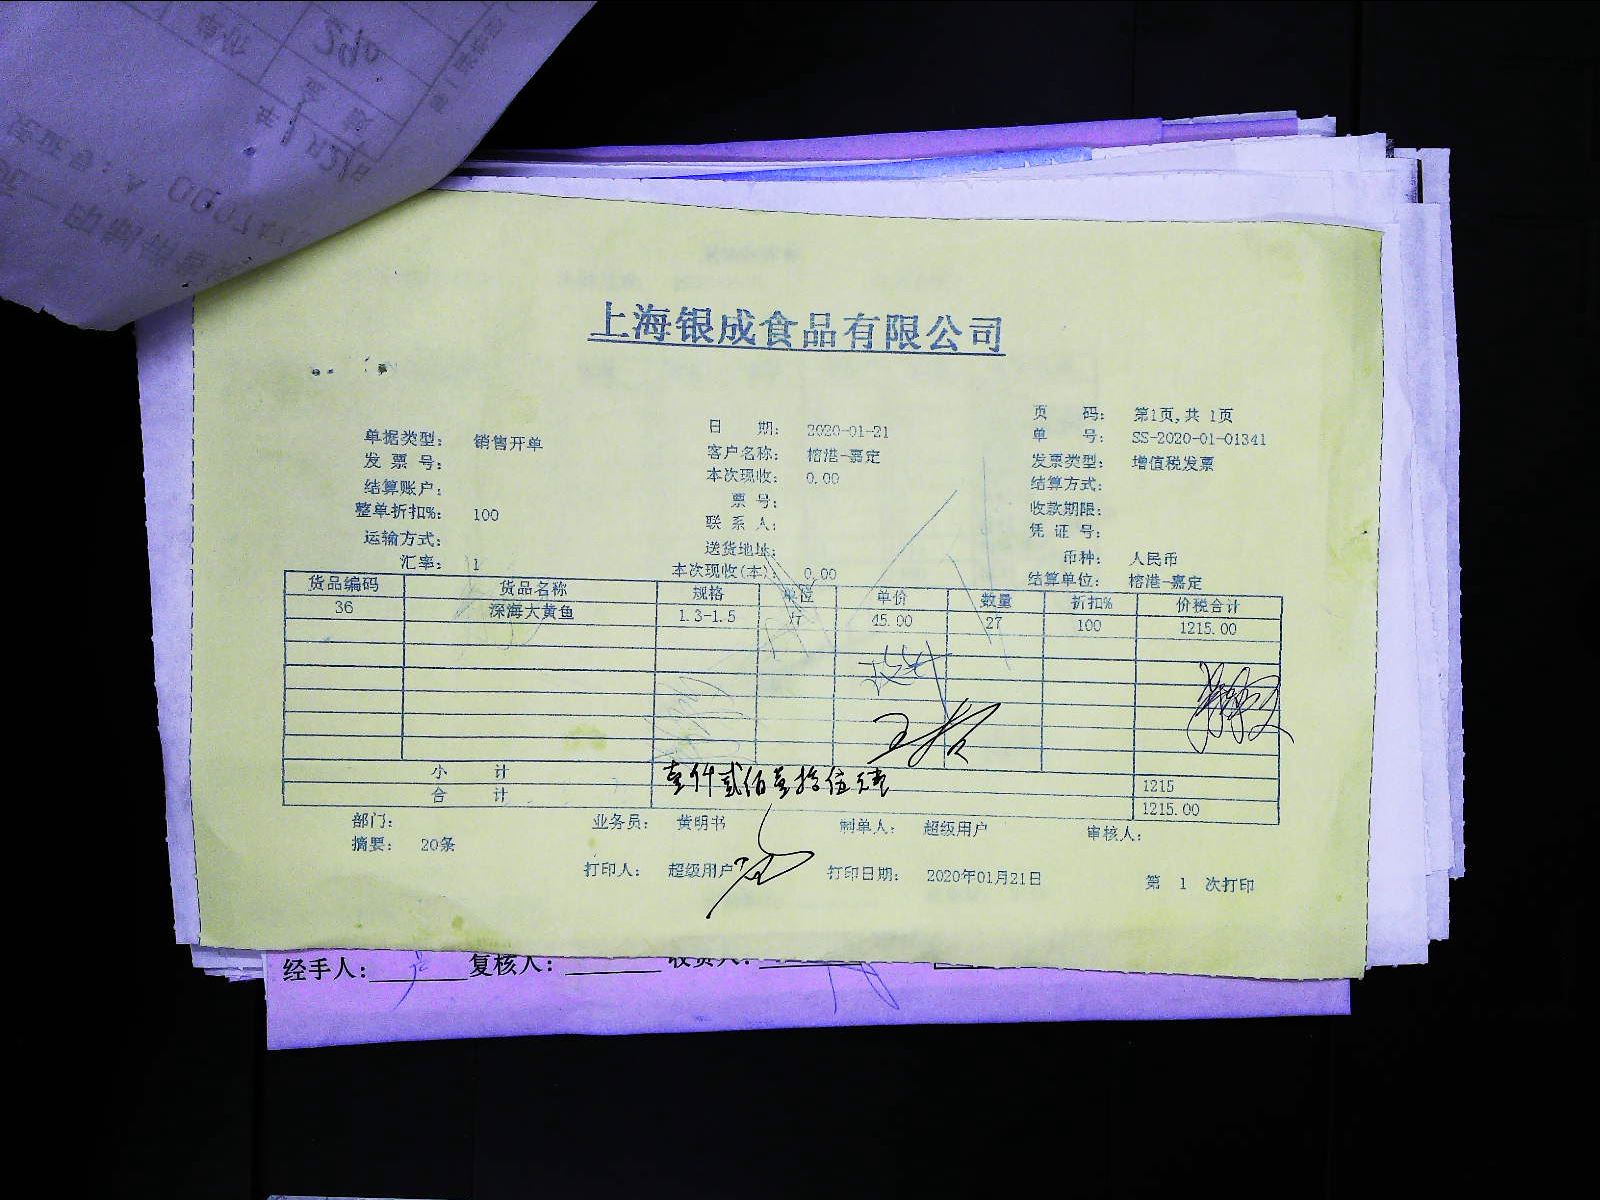 上海银成食品有限公司
页 码: 第1页,共 1页
单据类型: 销售开单 日 期: 2020-01-21 单 号: SS-2020-01-01341
发 票 号: 客户名称: 榕港-嘉定 发票类型: 增值税发票
结算账户: 本次现收: 0.00 结算方式:
整单折扣%: 100 票 号: 收款期限:
运输方式: 联 系 人: 凭 证 号:
汇率: 1 送货地址: 币种: 人民币
本次现收(本): 0.00 结算单位: 榕港-嘉定
货品编码 货品名称 规格 单位 单价 数量 折扣% 价税合计
36 深海大黄鱼 1.3-1.5 斤 45.00 27 100 1215.00
小 计 壹仟贰佰壹拾伍元 1215
合 计 1215.00
部门: 业务员: 黄明书 制单人: 超级用户 审核人:
摘要: 20条
打印人: 超级用户 打印日期: 2020年01月21日 第 1 次打印
经手人: 复核人: 收货人: